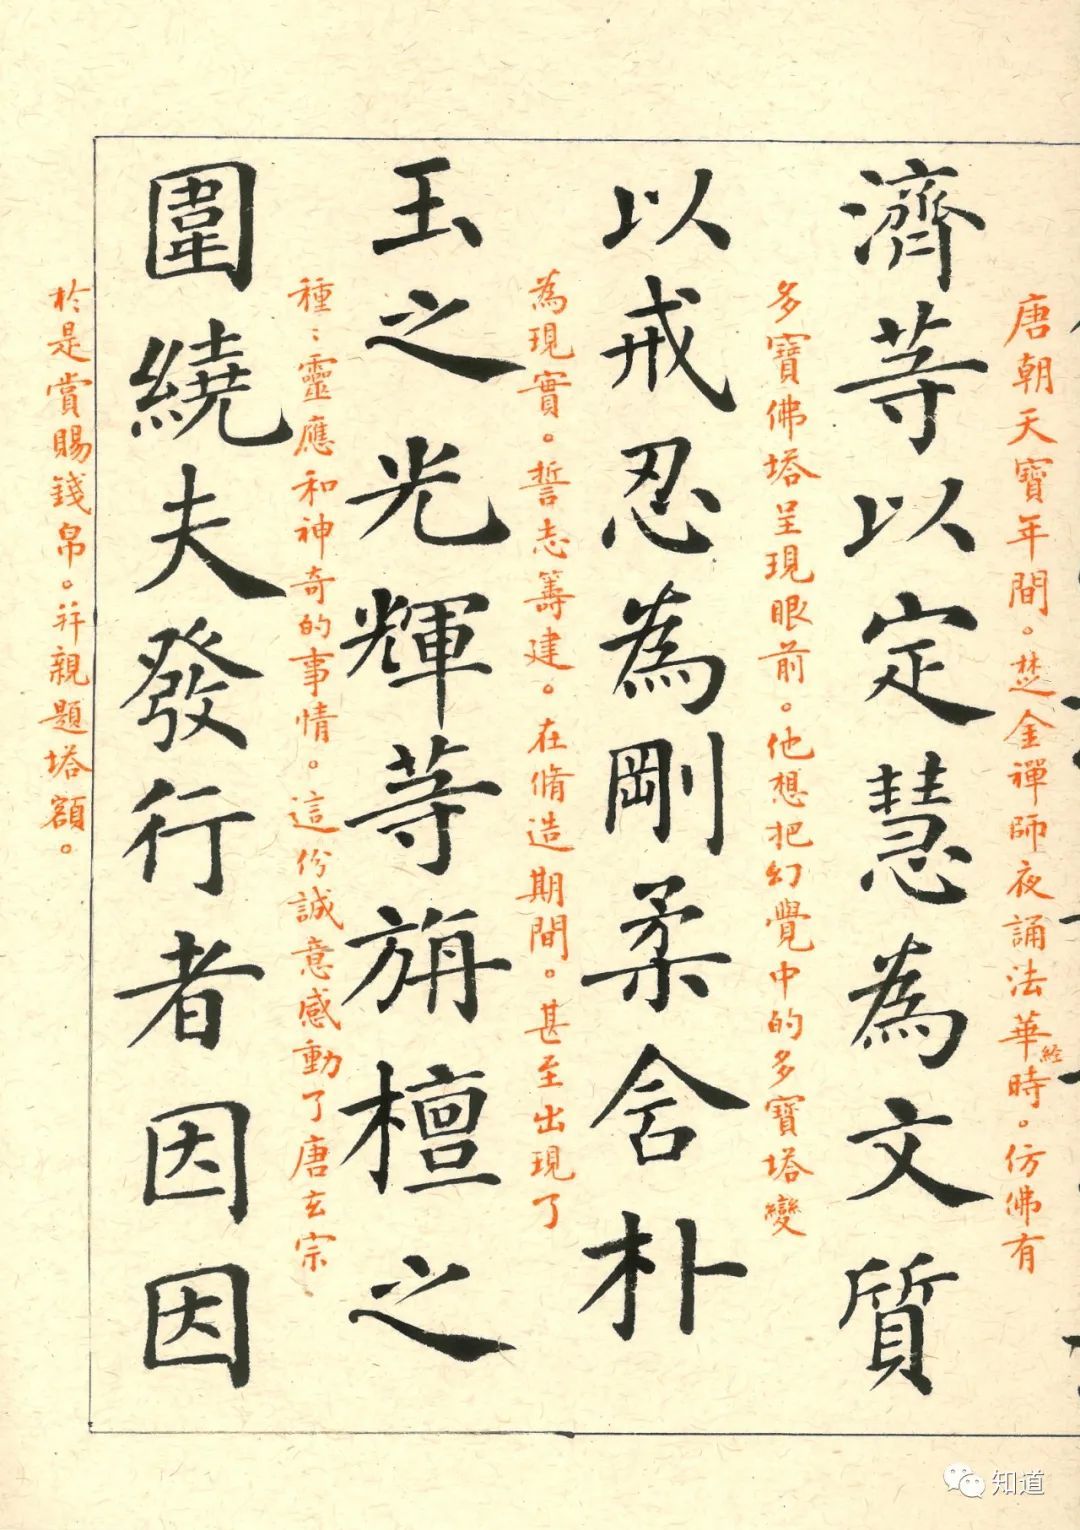 唐朝天寶年間。楚金禪師夜誦法華經時。仿佛有
濟等以定慧為文質
多寶佛塔呈現眼前。他想把幻覺中的多寶塔變
以戒忍為剛柔含朴
為現實。誓志籌建。在脩造期間。甚至出現了
玉之光輝等旃檀之
種：靈應和神奇的事情。這份誠意感動了唐玄宗
圍繞夫發行者因因
於是賞賜錢帛。并親題塔額。
知道